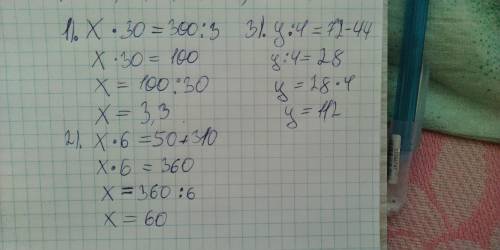 1). x · 30 = 300 : 3
x · 30 = 100
x = 100 : 30
x = 3,3
2). x · 6 = 50 + 310
x · 6 = 360
x = 360 : 6
x = 60
3). y : 4 = 72 - 44
y : 4 = 28
y = 28 · 4
y = 112